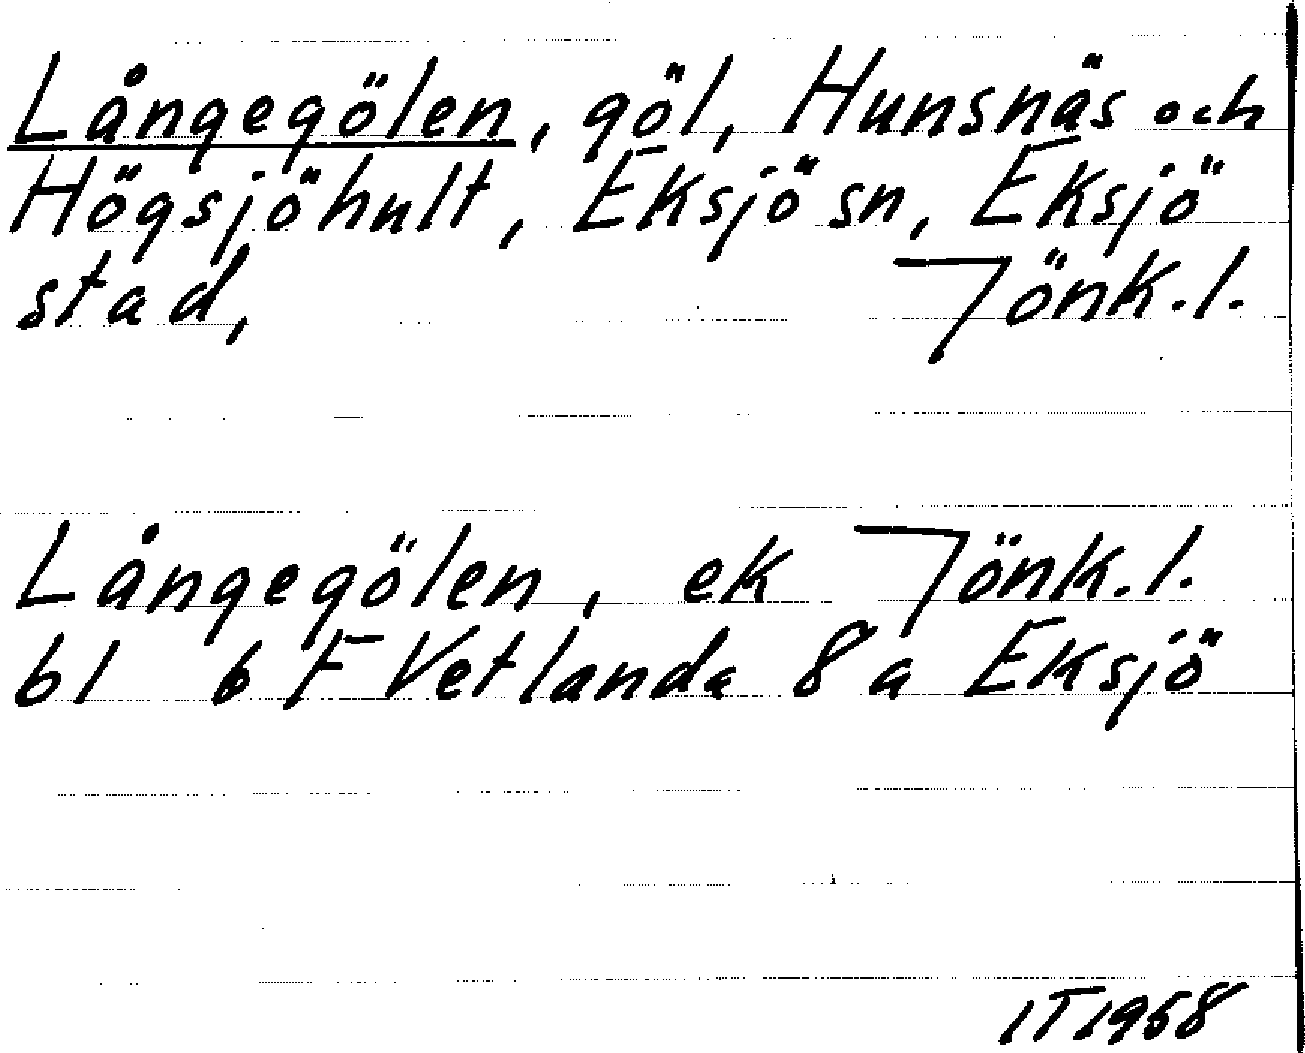 Långegölen, göl, Hunsnäs och
Högsjöhult, Eksjö sn, Eksjö
stad, Jönk.l.
Långegölen, ek Jönk.l.
bl 6 F Vetlanda 8 a Eksjö
IT 1968